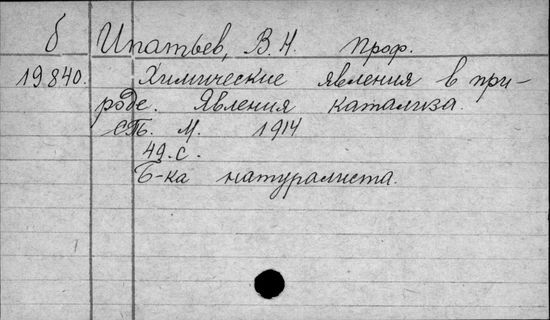 б Ипатьев, В. Н. проф.
19.840. Химические явления в при-
роде. Явления катализа.
СПБ. М. 1914
49. с.
Б-ка натуралиста.